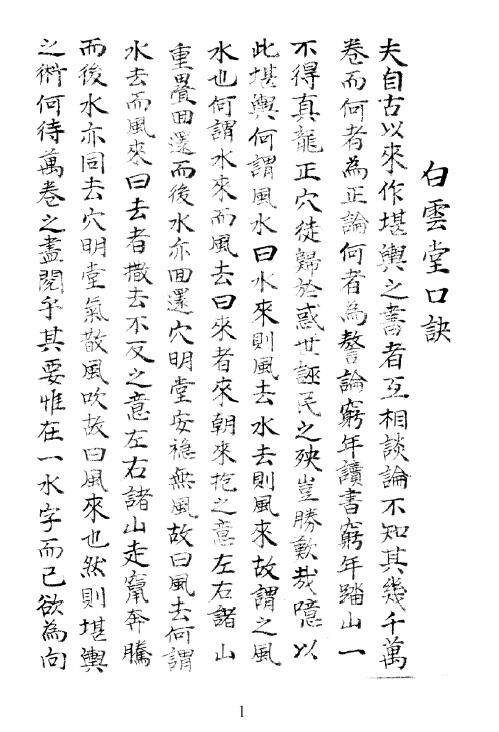 白雲堂口訣
夫自古以來作堪輿之書者互相談論不知其幾千萬
卷而何者為正論何者為謷論窮年讀書窮年踏山一
不得真龍正穴徒歸於惑世誣民之殃豈勝歎哉噫以
此堪輿何謂風水曰水來則風去水去則風來故謂之風
水也何謂水來而風去曰來者來朝來抱之意左右諸山
重疊回還而後水亦回還穴明堂安穩無風故曰風去何謂
水去而風來曰去者撒去不反之意左右諸山走竄奔騰
而後水亦同去穴明堂氣散風吹故曰風來也然則堪輿
之術何待萬卷之盡閱乎其要惟在一水字而已欲為向
1